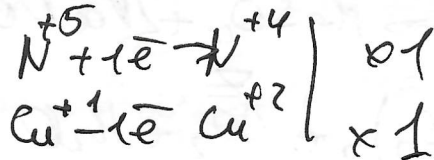 N⁺⁵ + 1ē → N⁺⁴ | ×1
Cu⁺¹ - 1ē Cu⁺² | ×1